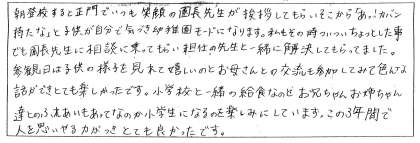 朝登校すると正門でいつも笑顔の園長先生が挨拶してもらいそこから「あっ!カバン
持たな」と子供が自分で気づき幼稚園モードになります。私もその時ついついちょっとした事
でも園長先生に相談に乗ってもらい担任の先生と一緒に解決してもらってました。
参観日は子供の様子を見れて嬉しいのとお母さんとの交流も参加してみて色んな
話ができとても楽しかったです。小学校と一緒の給食なのとお兄ちゃんお姉ちゃん
達とのふれあいもあってなのか小学生になるのを楽しみにしています。この3年間で
人を思いやる力がつきとても良かったです。